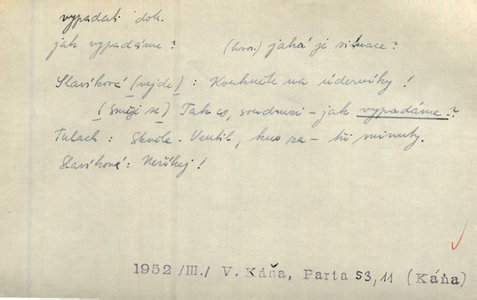 vypadati dok.
jak vypadáme? (hovor.) jaká je situace?
Slavíková (vejde): Koukněte na úderníky!
(Směje se) Tak co, soudruzi – jak vypadáme?
Talach: Skvěle. Ventil, kus za – tři minuty.
Slavíková: Neříkej!
1952 /III./ V. Káňa, Parta 53,11 (Káňa)